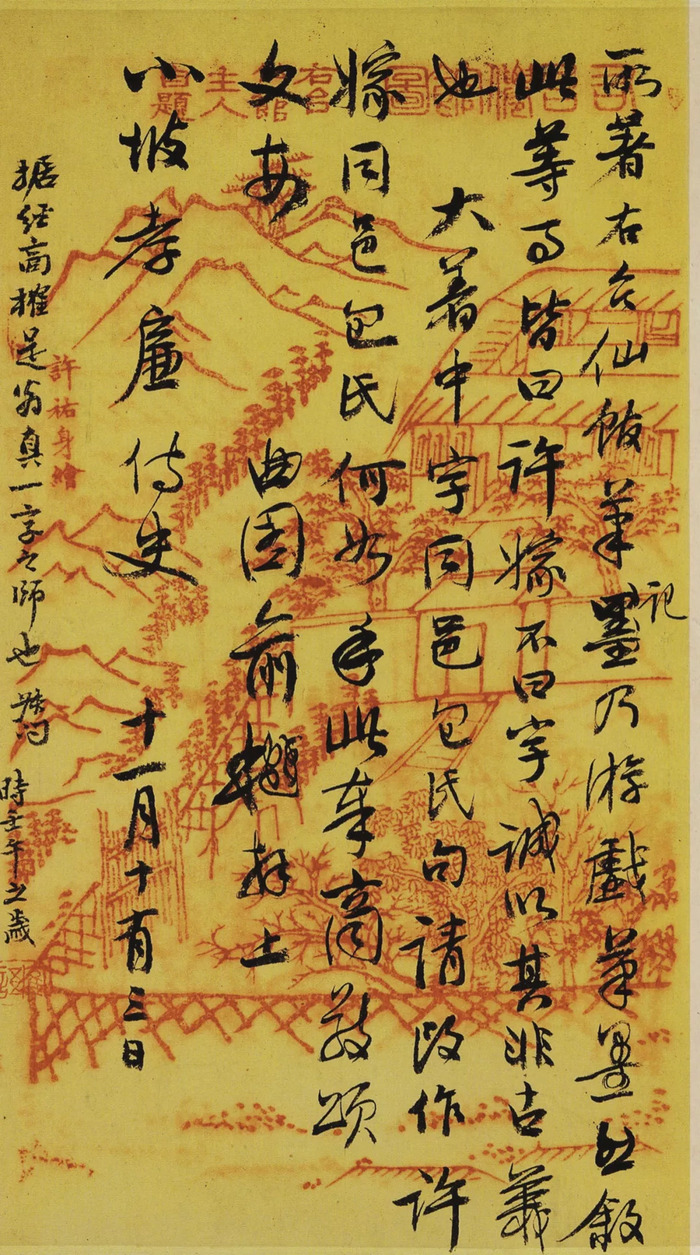 右台館主人自題
所著右台仙館筆墨記乃游戲筆墨然敘
此等事皆曰許嫁不曰字誠以其非古義
也 大著中字同邑包氏句請改作許
嫁同邑包氏何如手此奉商敬頌
文安 曲園俞樾拜上
小坡孝廉侍史 十一月十有三日
許祐身繪
據經商榷是翁真一字之師也 時壬午之歲